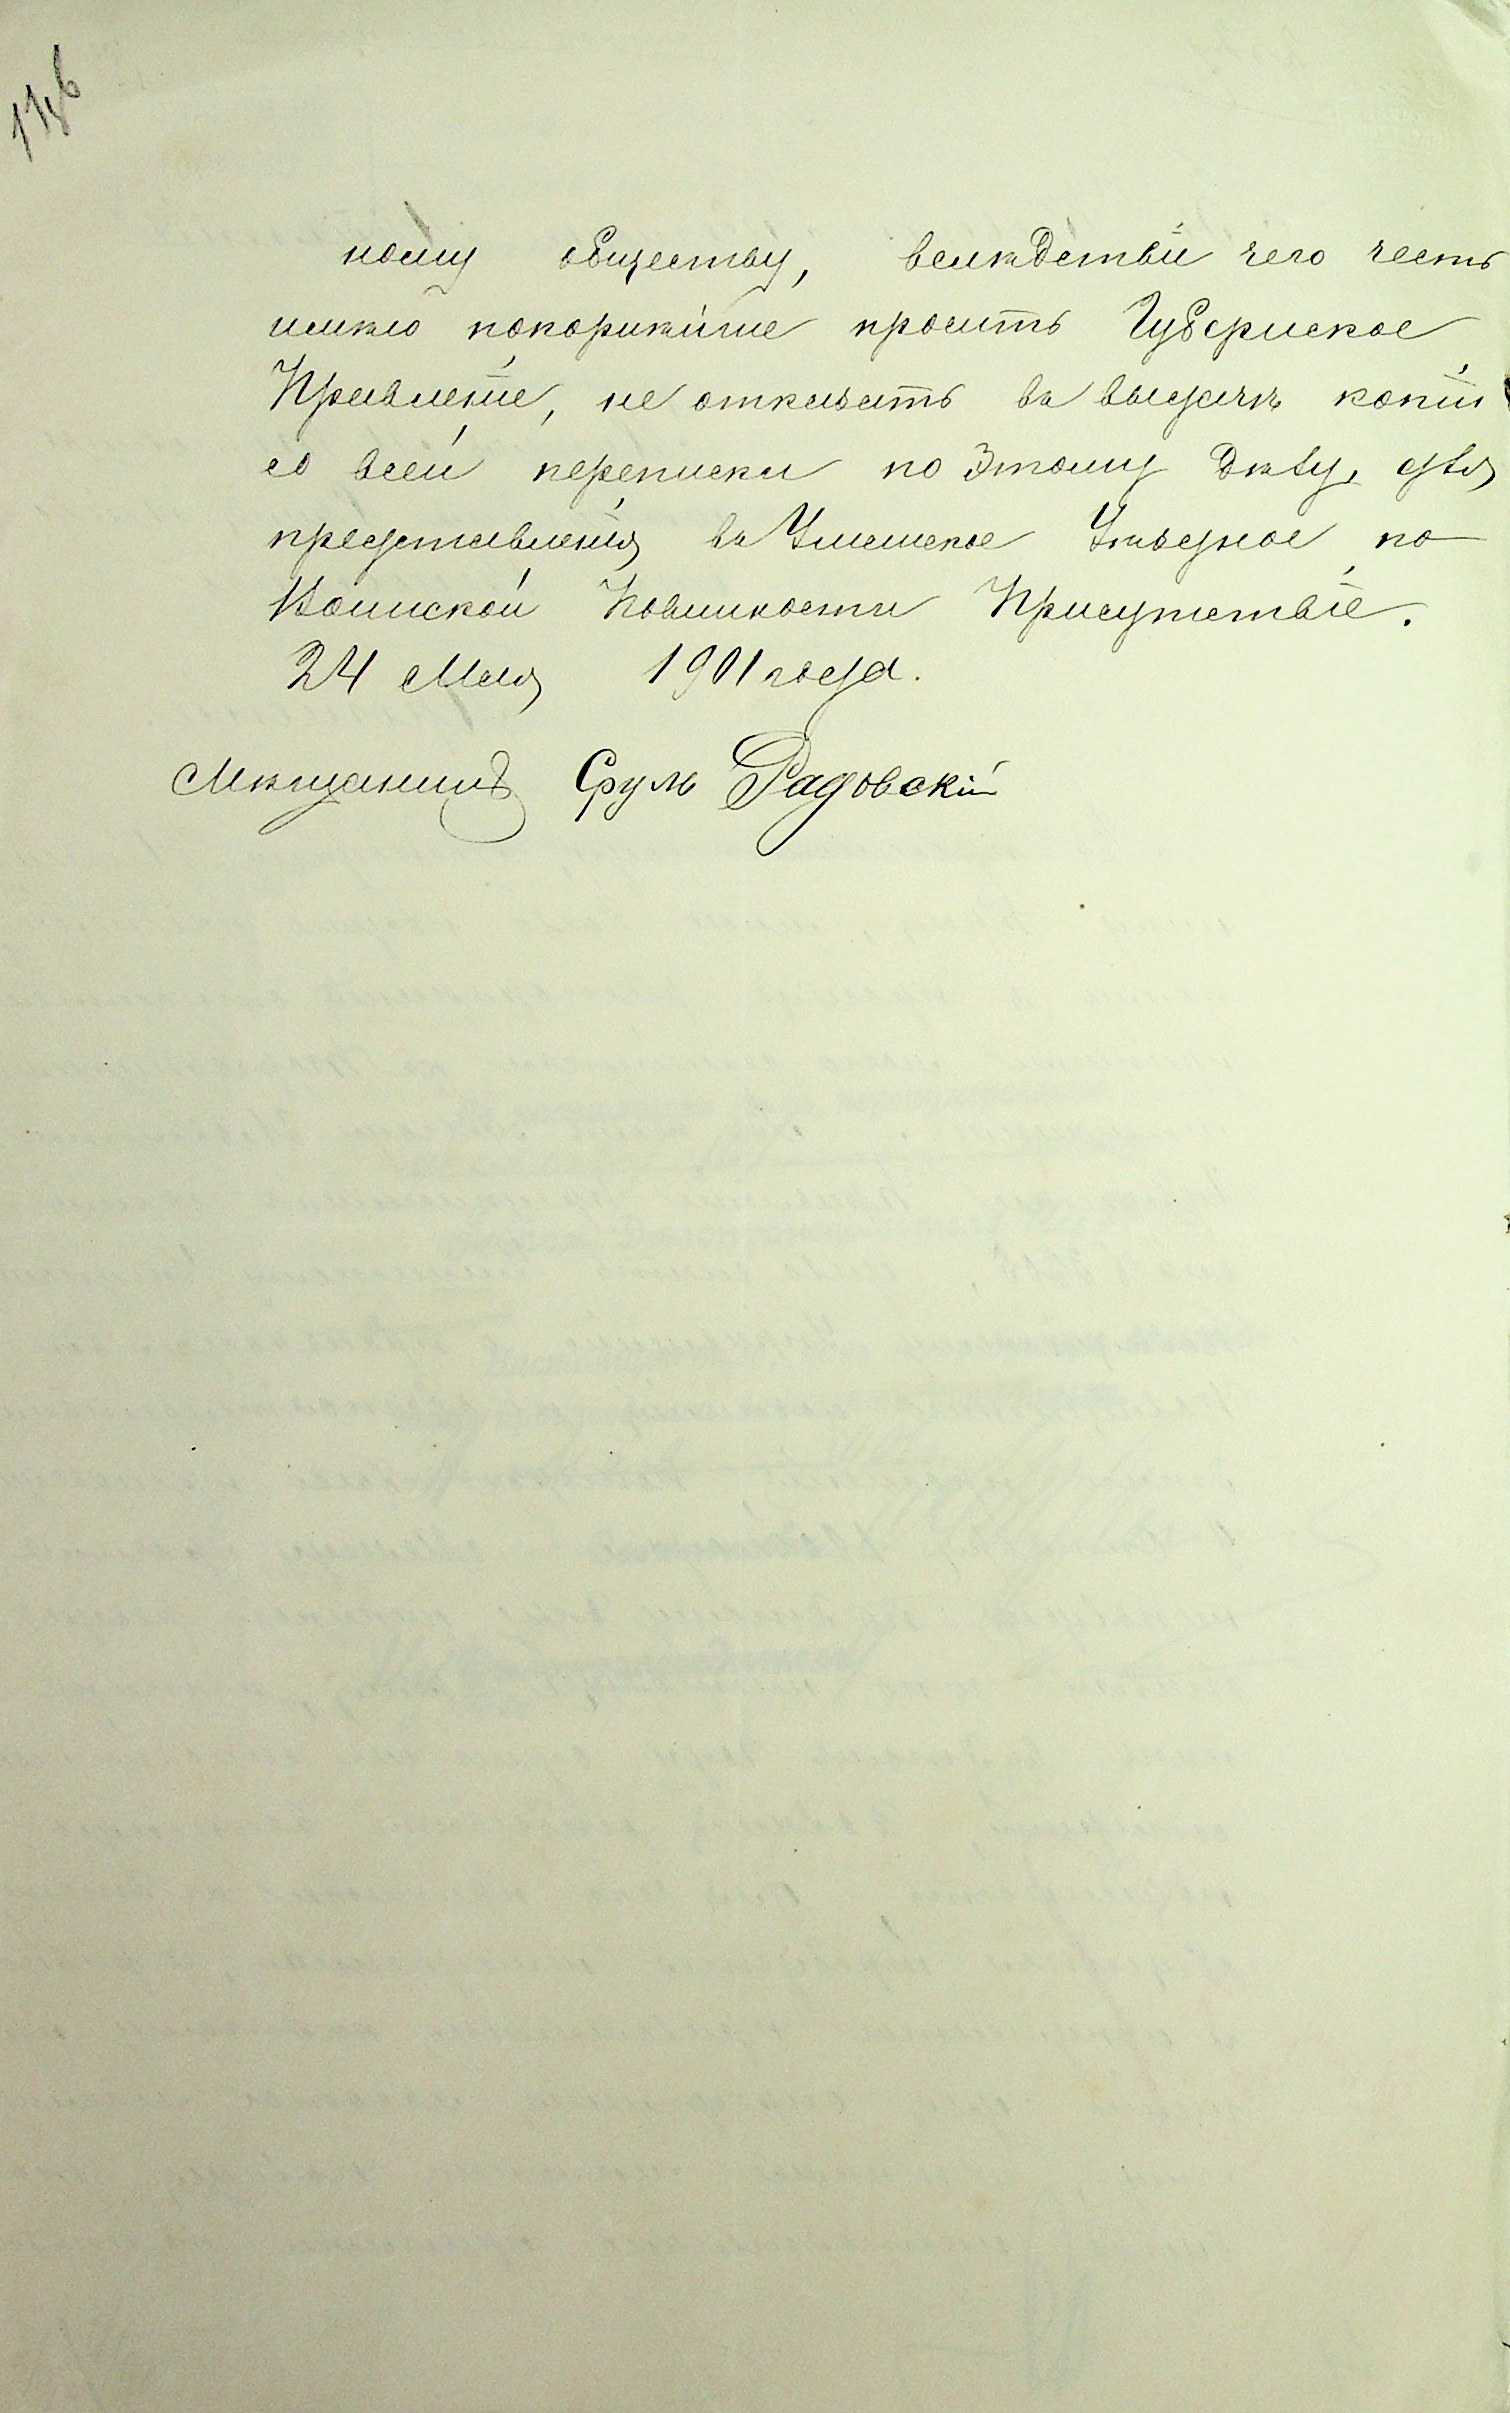 ному обществу, вслѣдствіи чего честь
имѣю покорнѣйше просить Губернское
Правленіе, не отказать въ выдачѣ копіи
со всей переписки по этому дѣлу, для
представленія въ Уманское Уѣздное по
Воинской Повинности Присутствіе.
24 Мая 1901 года.
Мѣщанинъ Сруль Радовскій